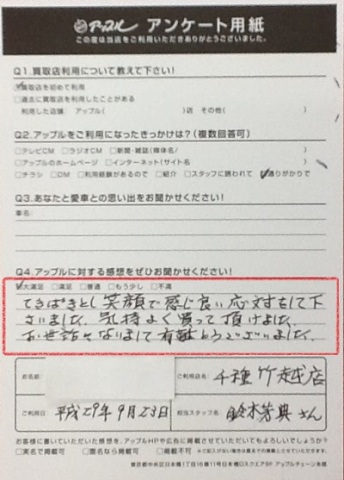 アップル アンケート用紙
この度は当店をご利用いただきありがとうございました。
Q1.買取店利用について教えて下さい!
☑買取店を初めて利用
□過去に買取店を利用したことがある
利用した店舗 アップル( )店 その他( )
Q2.アップルをご利用になったきっかけは?(複数回答可)
□テレビCM □ラジオCM □新聞・雑誌(媒体名/ )
□アップルのホームページ □インターネット(サイト名 )
□チラシ □DM □利用経験があるので □紹介 □スタッフに誘われて ☑通りがかりで
Q3.あなたと愛車との思い出をお聞かせください!
車名:
Q4.アップルに対する感想をぜひお聞かせください!
☑大満足 □満足 □普通 □もう少し □不満
てきぱきとし笑顔で感じ良い応対をして下
さいました。気持よく買って頂けました。
お世話になりまして有難とうございました。
お名前 ご利用店名 千種竹越店
ご利用日 平成29年9月23日 担当スタッフ名 鈴木芳典さん
お客様に書いていただいた感想を、アップルHPや広告に掲載させていただいてもよろしいでしょうか?
□実名で掲載可 □匿名なら掲載可 □不可
東京都中央区日本橋1丁目16番11号日本橋Dスクエア5F アップルチェーン本部